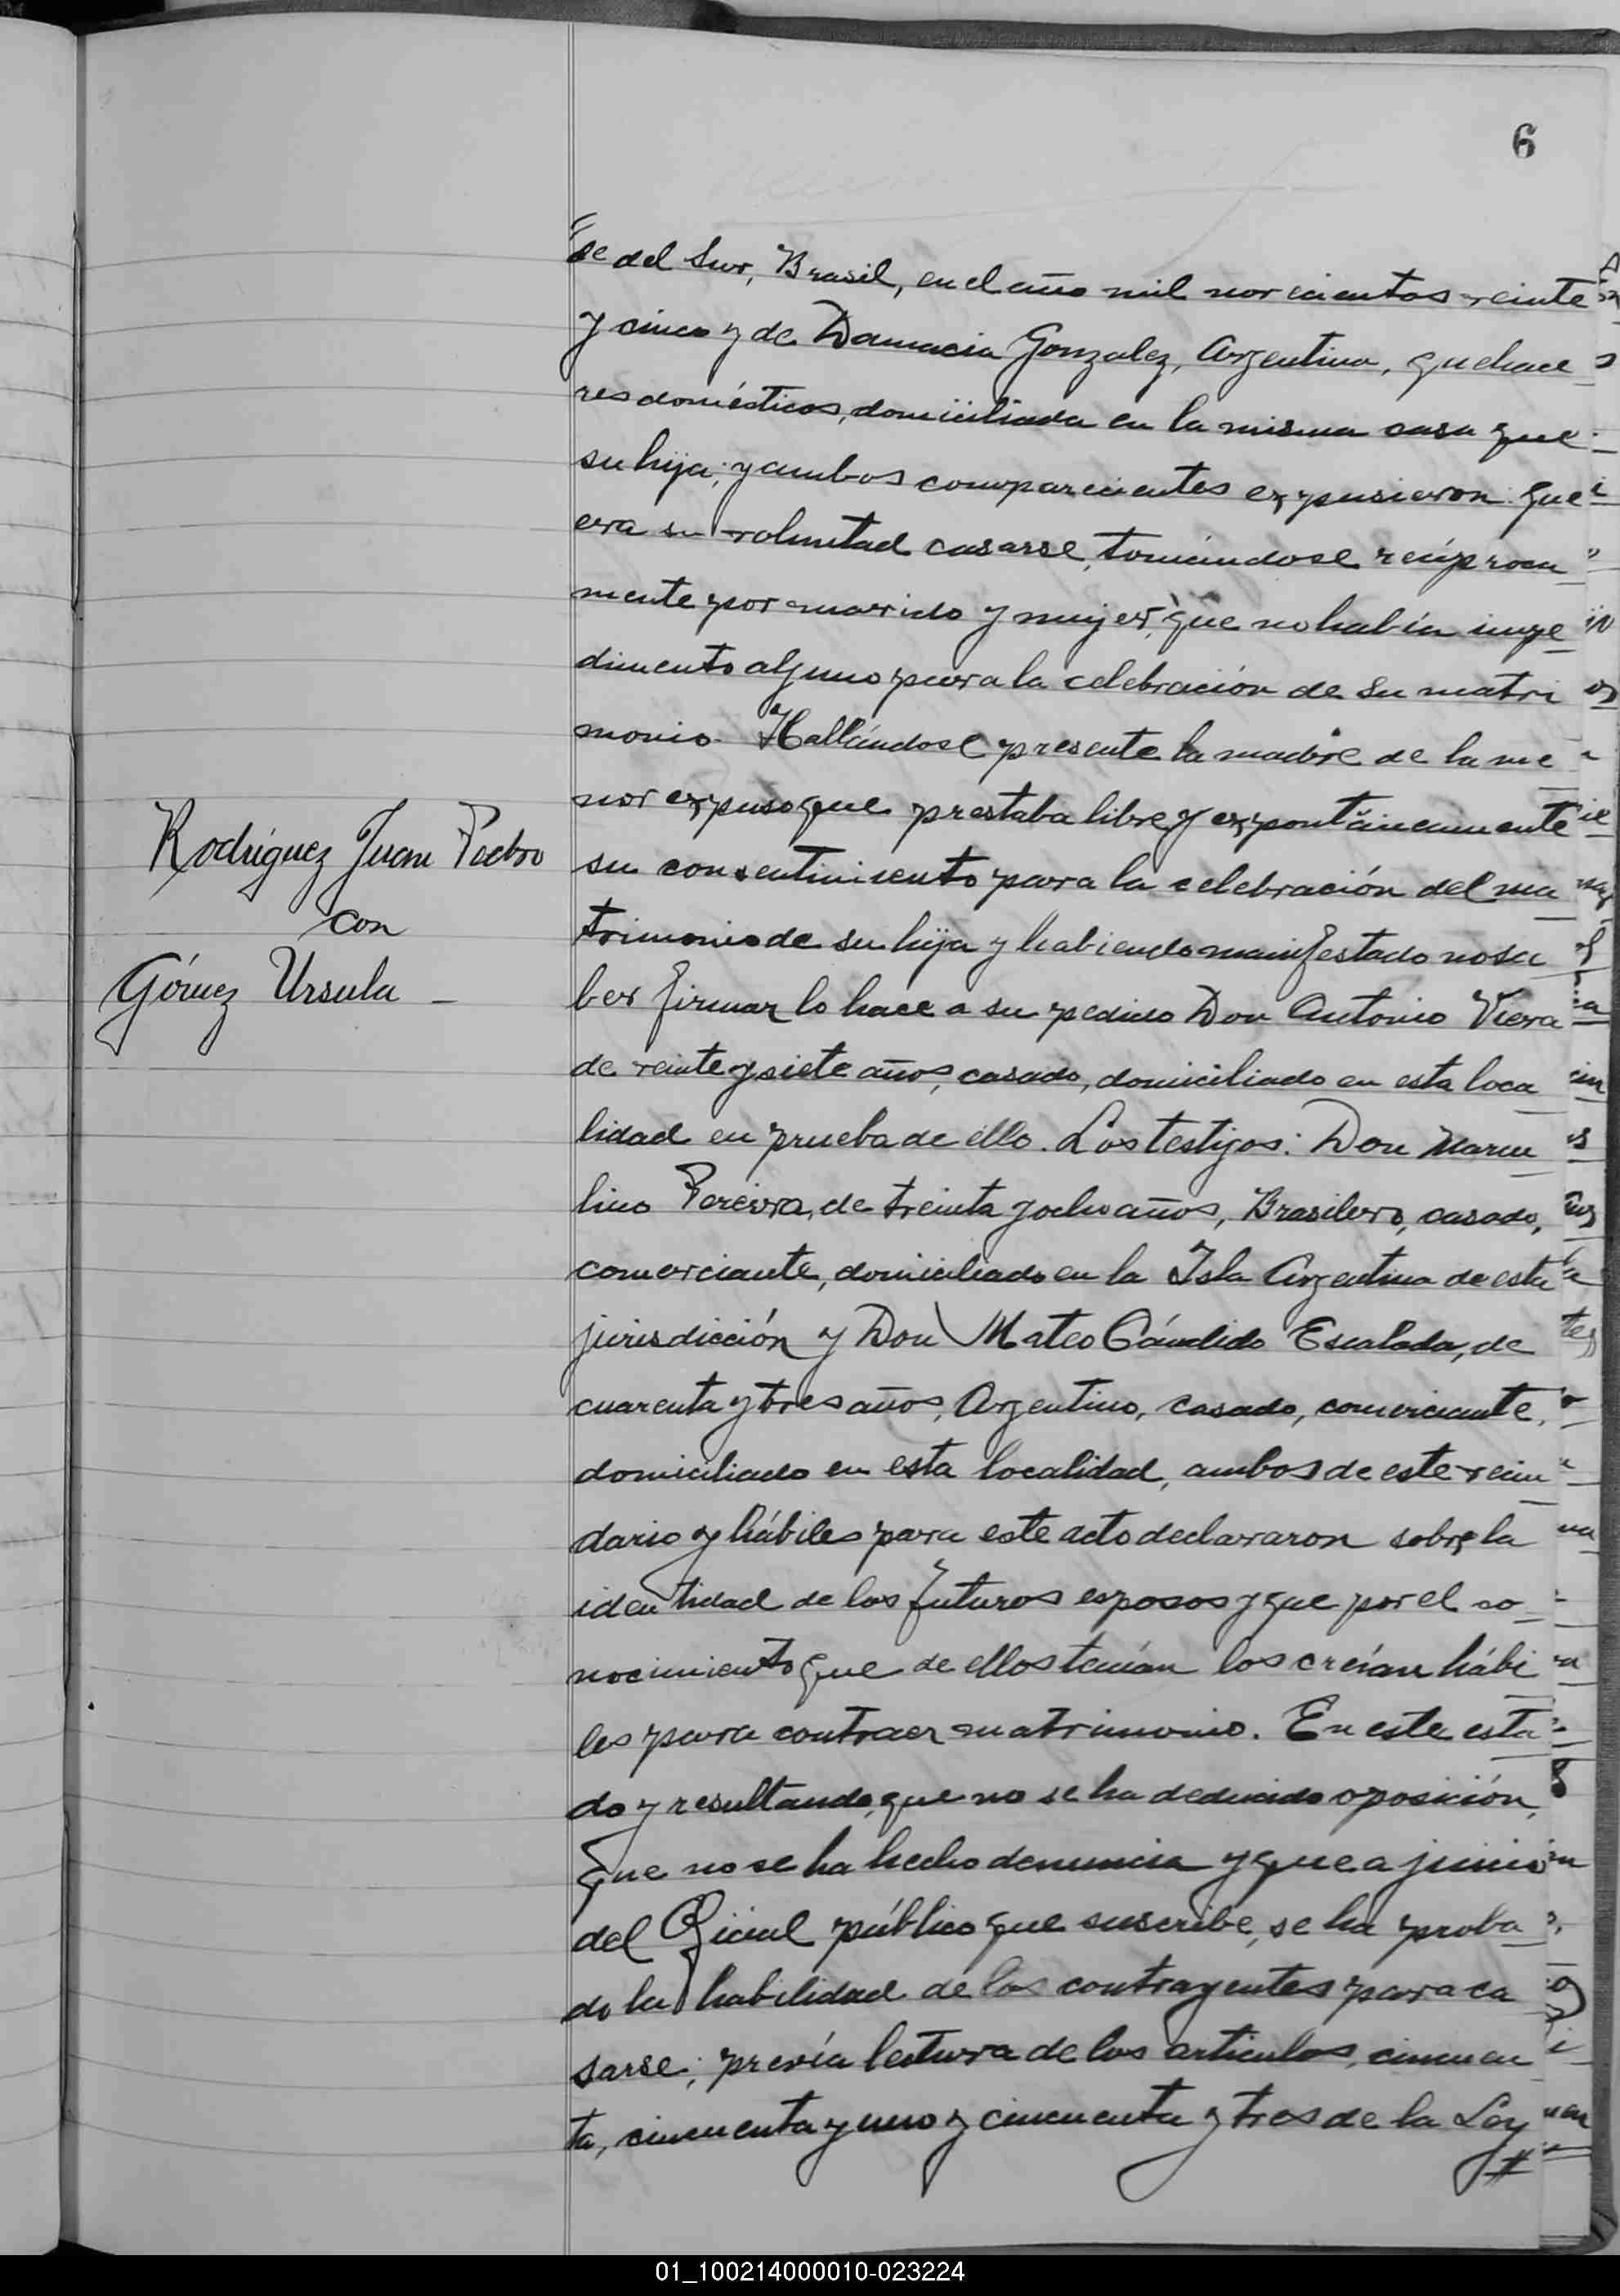 6
de del Sur, Brasil, en el año mil novecientos veinte
y cinco y de Damacia Gonzalez, Argentina, quehace
res domésticos, domiciliada en la misma casa que
su hija; y ambos comparecientes expusieron: que
era su voluntad casarse, tomándose recíproca
mente por marido y mujer, que no había impe
dimento alguno para la celebración de su matri
monio. Hallándose presente la madre de la me
nor expuso que prestaba libre y expontáneamente
su consentimiento para la celebración del ma
trimonio de su hija y habiendo manifestado no sa
ber firmar lo hace a su pedido Don Antonio Viera
de veinte y siete años, casado, domiciliado en esta loca
lidad en prueba de ello. Los testigos: Don Marcu
lino Pereira, de treinta y ocho años, Brasilero, casado,
comerciante, domiciliado en la Isla Argentina de esta
jurisdicción y Don Mateo Cándido Escalada, de
cuarenta y tres años, Argentino, casado, comerciante,
domiciliado en esta localidad, ambos de este vecin
dario y hábiles para este acto declararon sobre la
identidad de los futuros esposos y que por el co
nocimiento que de ellos tenían los creían hábi
les para contraer matrimonio. En este esta
do y resultando, que no se ha deducido oposición,
que no se ha hecho denuncia y que a juicio
del Oficial público que suscribe, se ha proba
do la habilidad de los contrayentes para ca
sarse; previa lectura de los artículos, cincuen
ta, cincuenta y uno y cincuenta y tres de la Ley
Rodríguez Juan Pedro
con
Gómez Ursula –
01_100214000010-023224